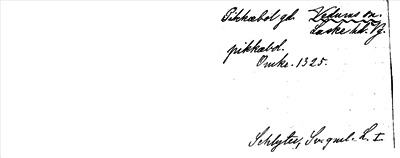 Pikkabol gd. Vedums sn.
Laske hd. Vg.
pikkabol.
Omkr. 1325.
Schlyter, Sv. gml. L. I